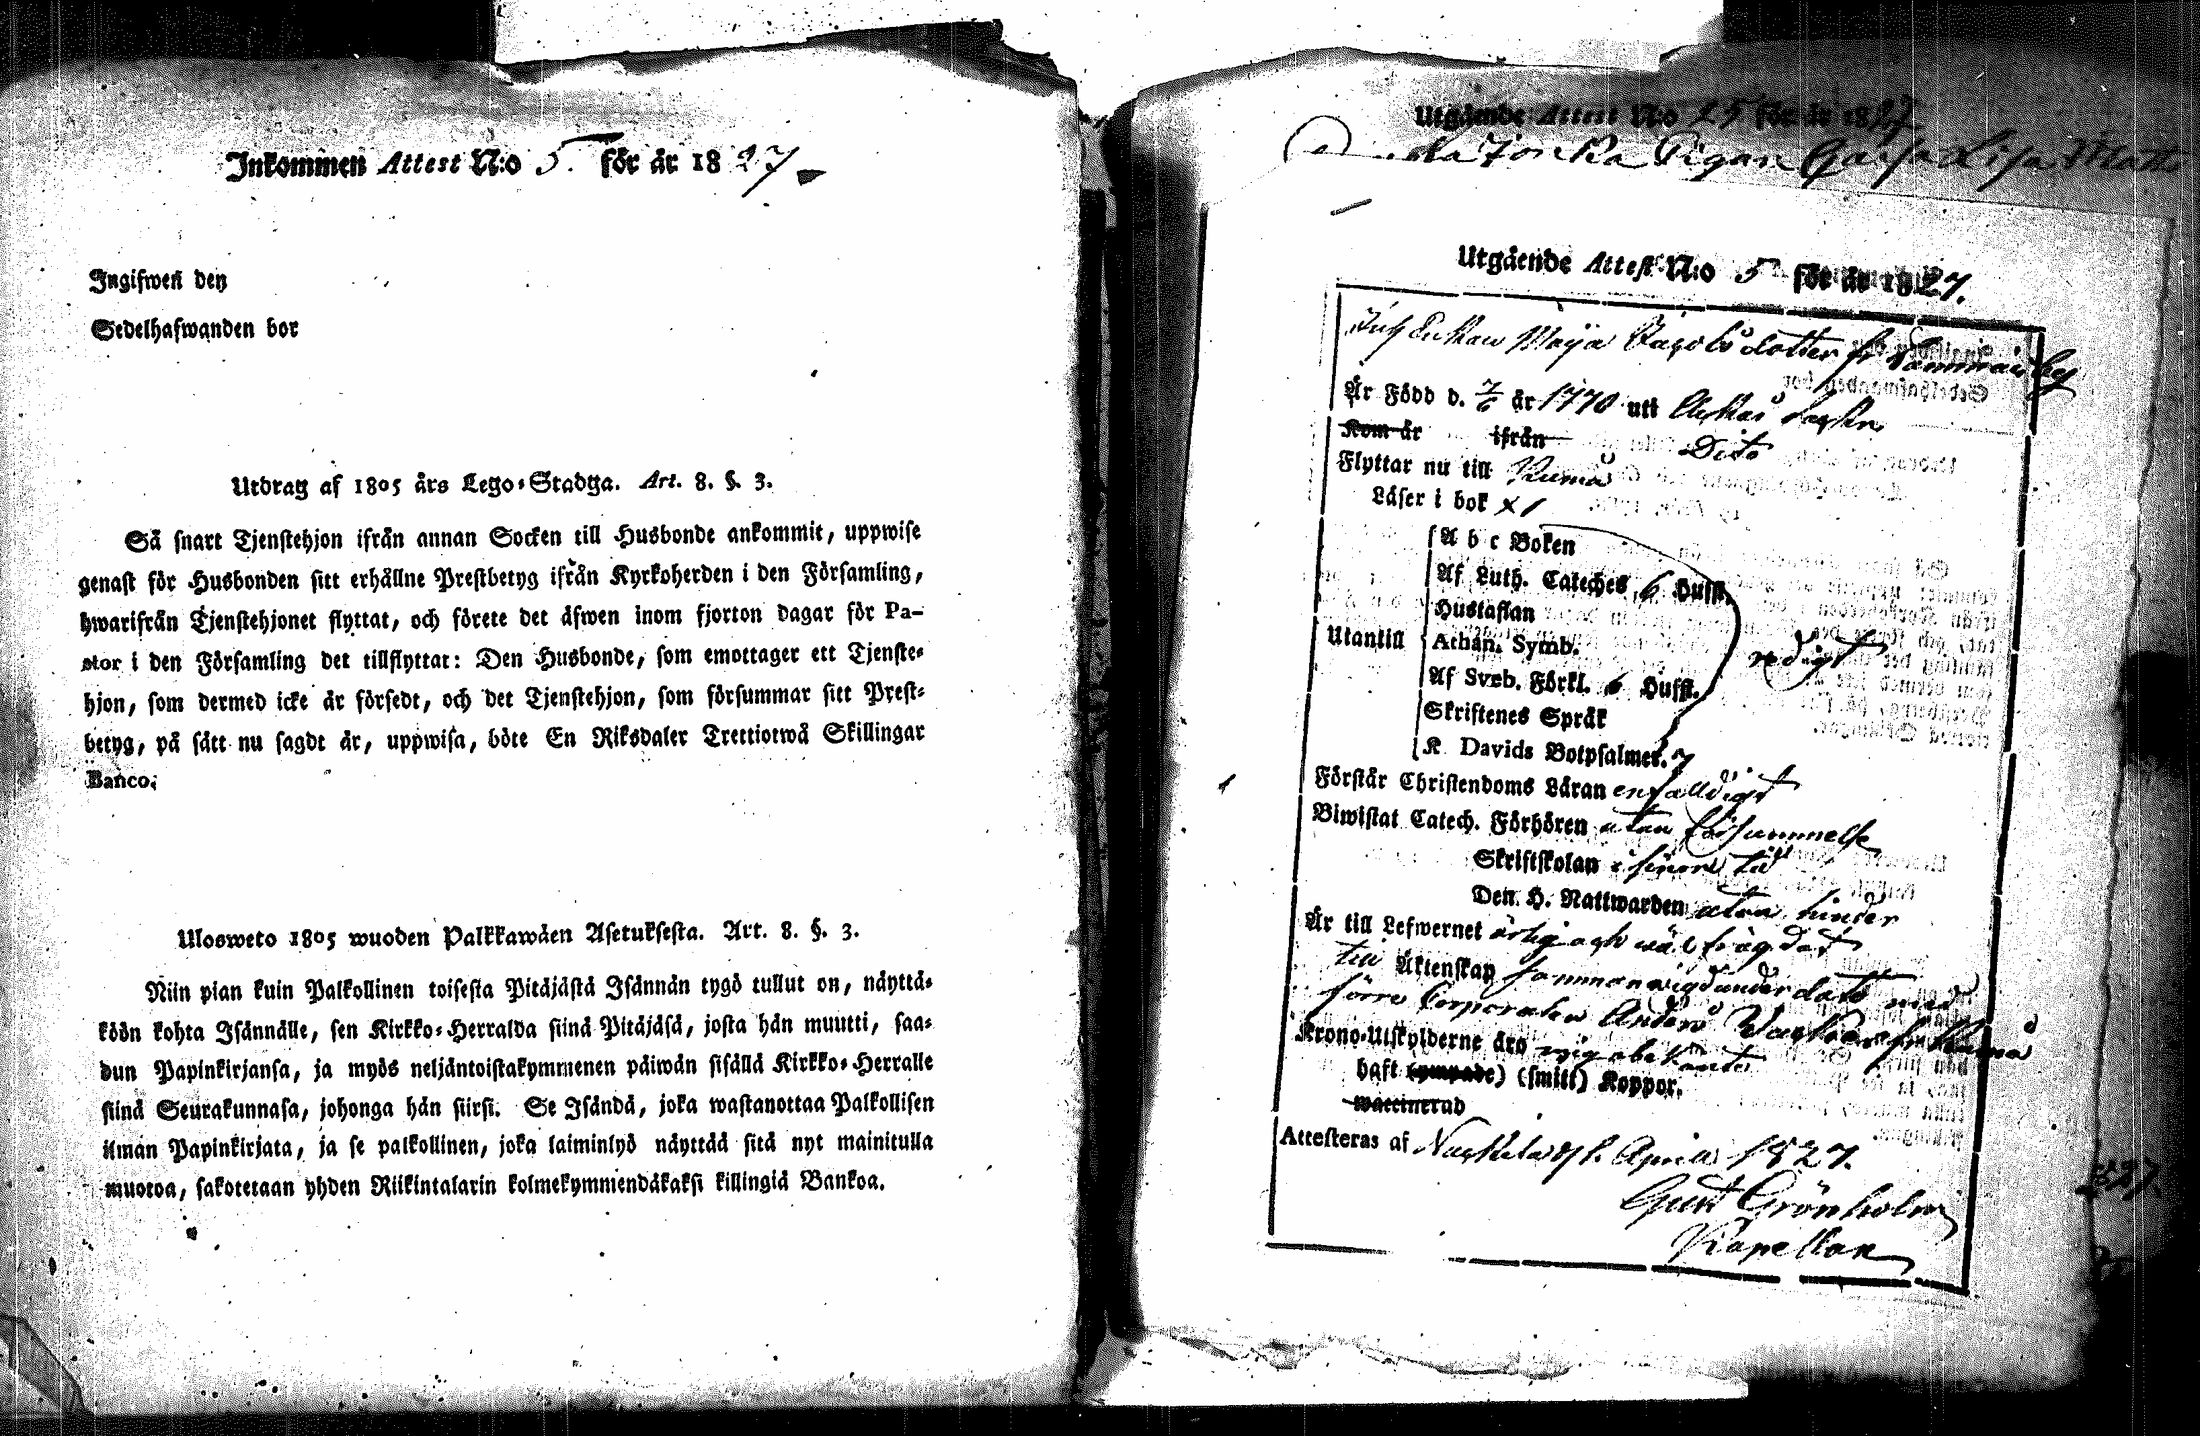 Inkommen Attest N:o 5. för år 1827.
Ingifwen den
Sedelhafwanden bor
Utdrag af 1805 års Lego-Stadga. Art. 8. §. 3.
Så snart Tjenstehjon ifrån annan Socken till Husbonde ankommit, uppwise
genast för Husbonden sitt erhållne Prestbetyg ifrån Kyrkoherden i den Församling,
hwarifrån Tjenstehjonet flyttat, och förete det äfwen inom fjorton dagar för Pa-
stor i den Församling det tillflyttat: Den Husbonde, som emottager ett Tjenste-
hjon, som dermed icke är försedt, och det Tjenstehjon, som försummar sitt Prest-
betyg, på sätt nu sagdt är, uppwisa, böte En Riksdaler Trettiotwå Skillingar
Banco.
Ulosweto 1805 wuoden Palkkawäen Asetuksesta. Art. 8. §. 3.
Niin pian kuin Palkollinen toisesta Pitäjästä Isännän tygö tullut on, näyttä-
köön kohta Isännälle, sen Kirkko-Herralda siinä Pitäjäsä, josta hän muutti, saa-
dun Papinkirjansa, ja myös neljäntoistakymmenen päiwän sisällä Kirkko-Herralle
siinä Seurakunnasa, johonga hän siirsi. Se Isändä, joka wastanottaa Palkollisen
ilman Papinkirjata, ja se palkollinen, joka laiminlyö näyttää sitä nyt mainitulla
muotoa, sakotetaan yhden Riikintalarin kolmekymmendäkaksi killingiä Bankoa.
Utgående Attest N:o 25 för år 1827
Pigan Caisa Lisa Matts
Utgående Attest N:o 5 för år 1827.
Enkan Maja Jacobsdotter fr
Är Född d. 7/6 år 1770 uti
Kom år ifrån Dito
Flyttar nu till Kumo
Läser i bok x 1
Utantill
A b c Boken
Af Luth. Cateches 6 Hufst.
Hustaflan
Athan. Symb.
Af Sveb. Förkl. 6 Hufst.
Skriftenes Språk
K. Davids Botpsalmer. 7
redigt
Förstår Christendoms Läran enfalldigt
Biwistat Catech. Förhören utan försummelse
Skriftskolan i sinom tid
Den H. Nattwarden utan hinder
Är till Lefwernet ärlig och wäl frägdad
till Äktenskap sammanwigd under dato med
förre Corporalen Anders fr Kumo
Krono-Utskylderne äro mig obekante
haft (ympade) (smitt) Koppor.
waccinerad
Attesteras af April 1827.
Gust Grönholm
Kapellan